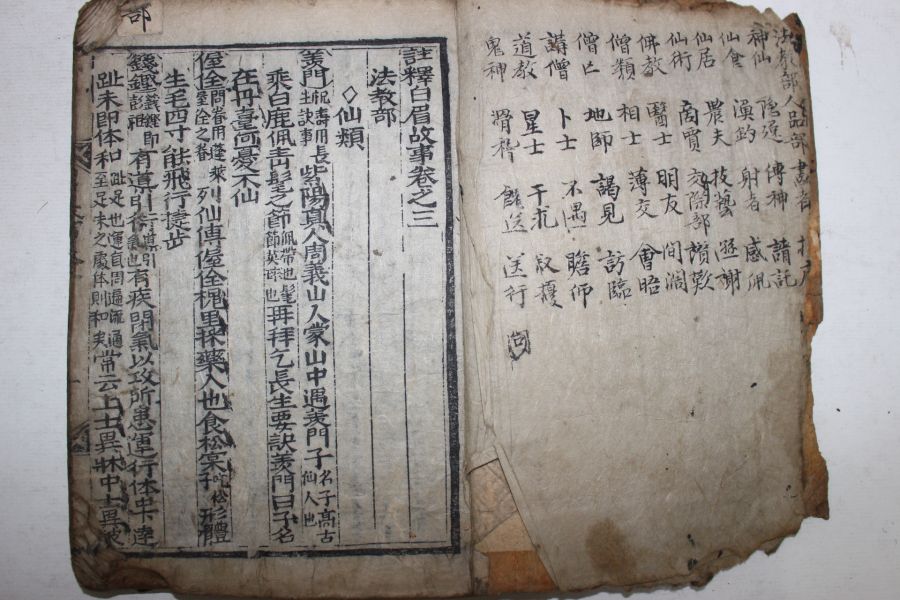 法教部 人品部 畫者
神仙 隱逸 傳神 請託
仙食 漁釣 射者 感佩
仙居 農夫 技藝 謝
仙術 商賈 交際部 讃歎
佛教 醫士 明友 間濶
僧類 相士 薄交 會晤
僧亡 地師 謁見 訪臨
講僧 卜士 不遇 瞻仰
道教 星士 干求 叙擾
鬼神 滑稽 餽送 送行
註釋白眉故事卷之三
法教部
◇仙類
羨門祝壽用長生訣事紫陽真人周義山入蒙山中遇羨門子名子高古仙人也
乘白鹿佩青髦之節佩帶也髦節英也再拜乞長生要訣羨門曰子名
在丹臺何憂不仙
偓佺問眷用蓬萊偓佺之眷列仙傳偓佺槐里採藥人也食松實形體
生毛四寸能飛行捷步
籛鏗籛鏗即彭祖有導引有疾閉氣以攻所患運行体中達
趾末即体和常云上士異牀中士異被
部